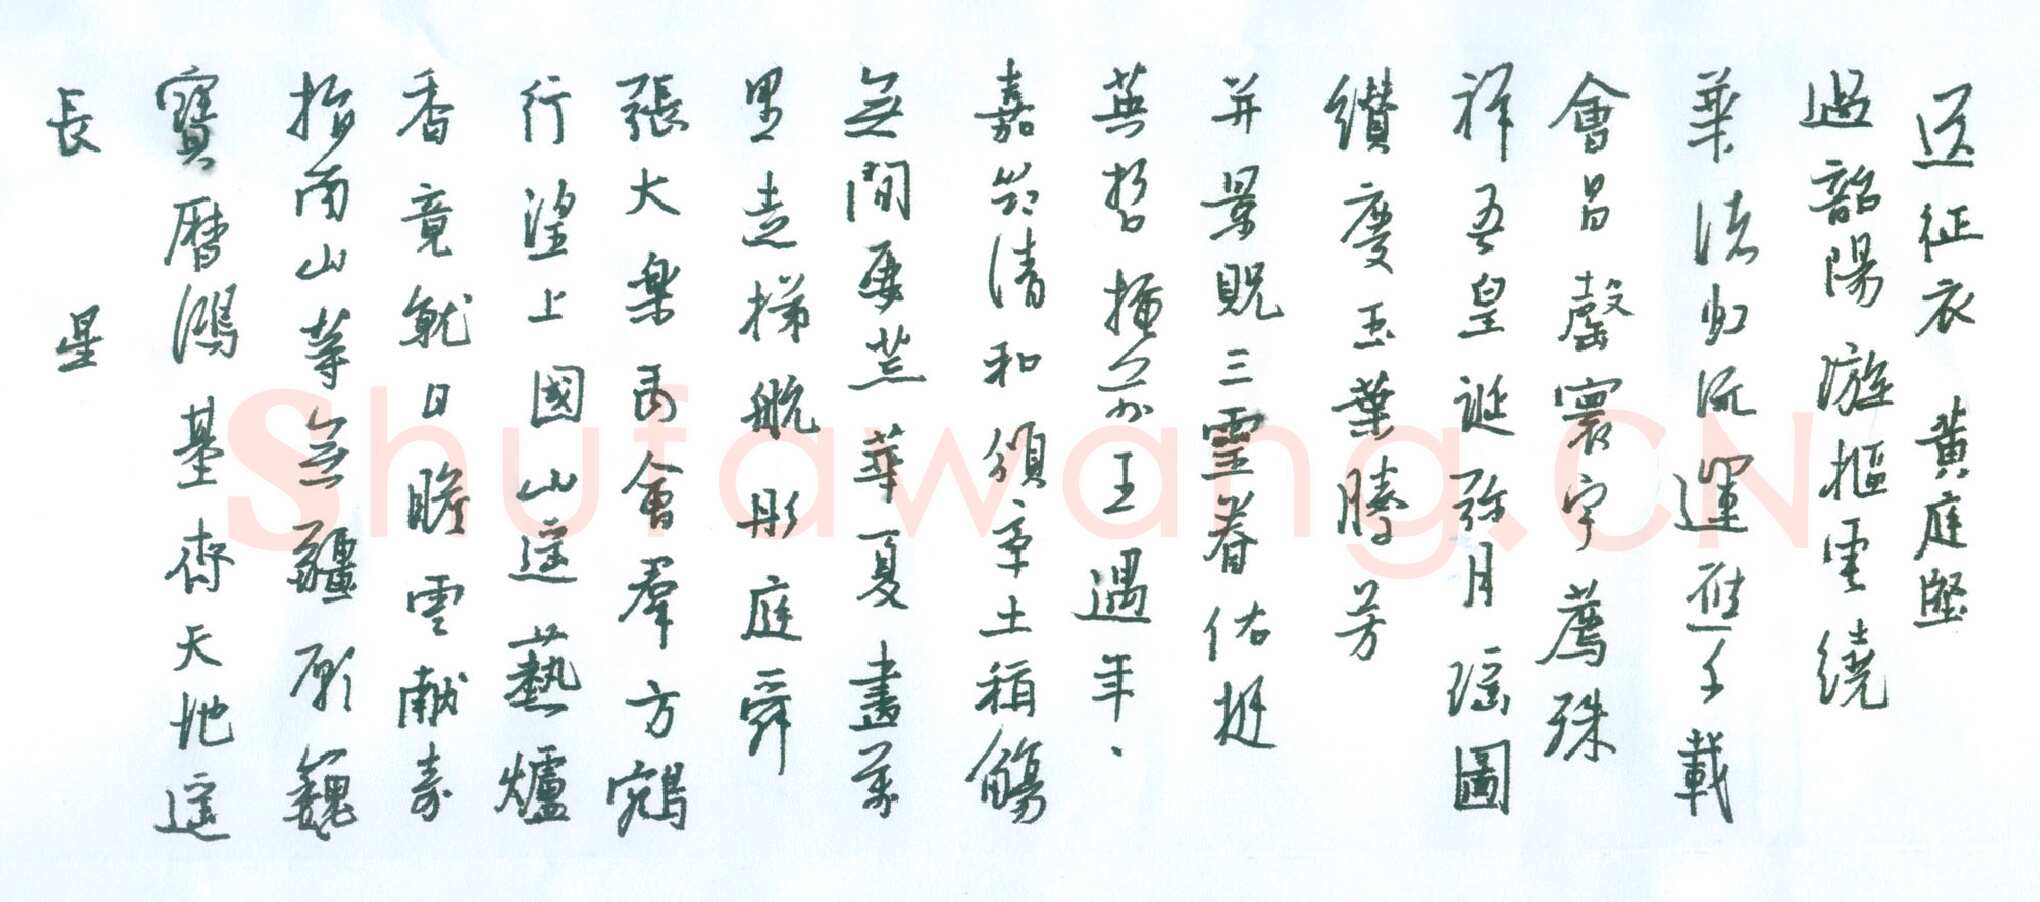 送征衣 黄庭堅
過韶陽璇樞電繞
華渚虹流運應千載
會昌罄寰宇薦殊
祥吾皇誕弥月瑶圖
纘慶玉葉騰芳
并景貺三靈眷佑挺
英哲掩前王遇年、
嘉節清和頒率土稱觴
無間要荒華夏盡萬
里走梯航彤庭舜
張大樂禹會羣方鵷
行望上國山遥爇爐
香竟就日瞻雲献壽
指南山等無疆願巍
寶曆鴻基齊天地遥
長 星
Shufawang.CN